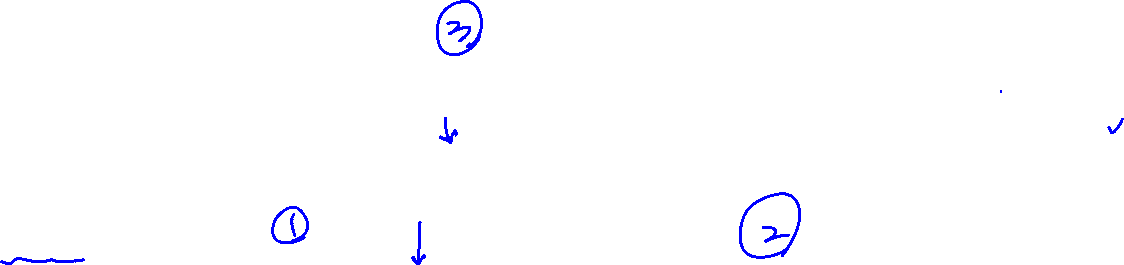 ③
↓ ✓
① ↓ ②